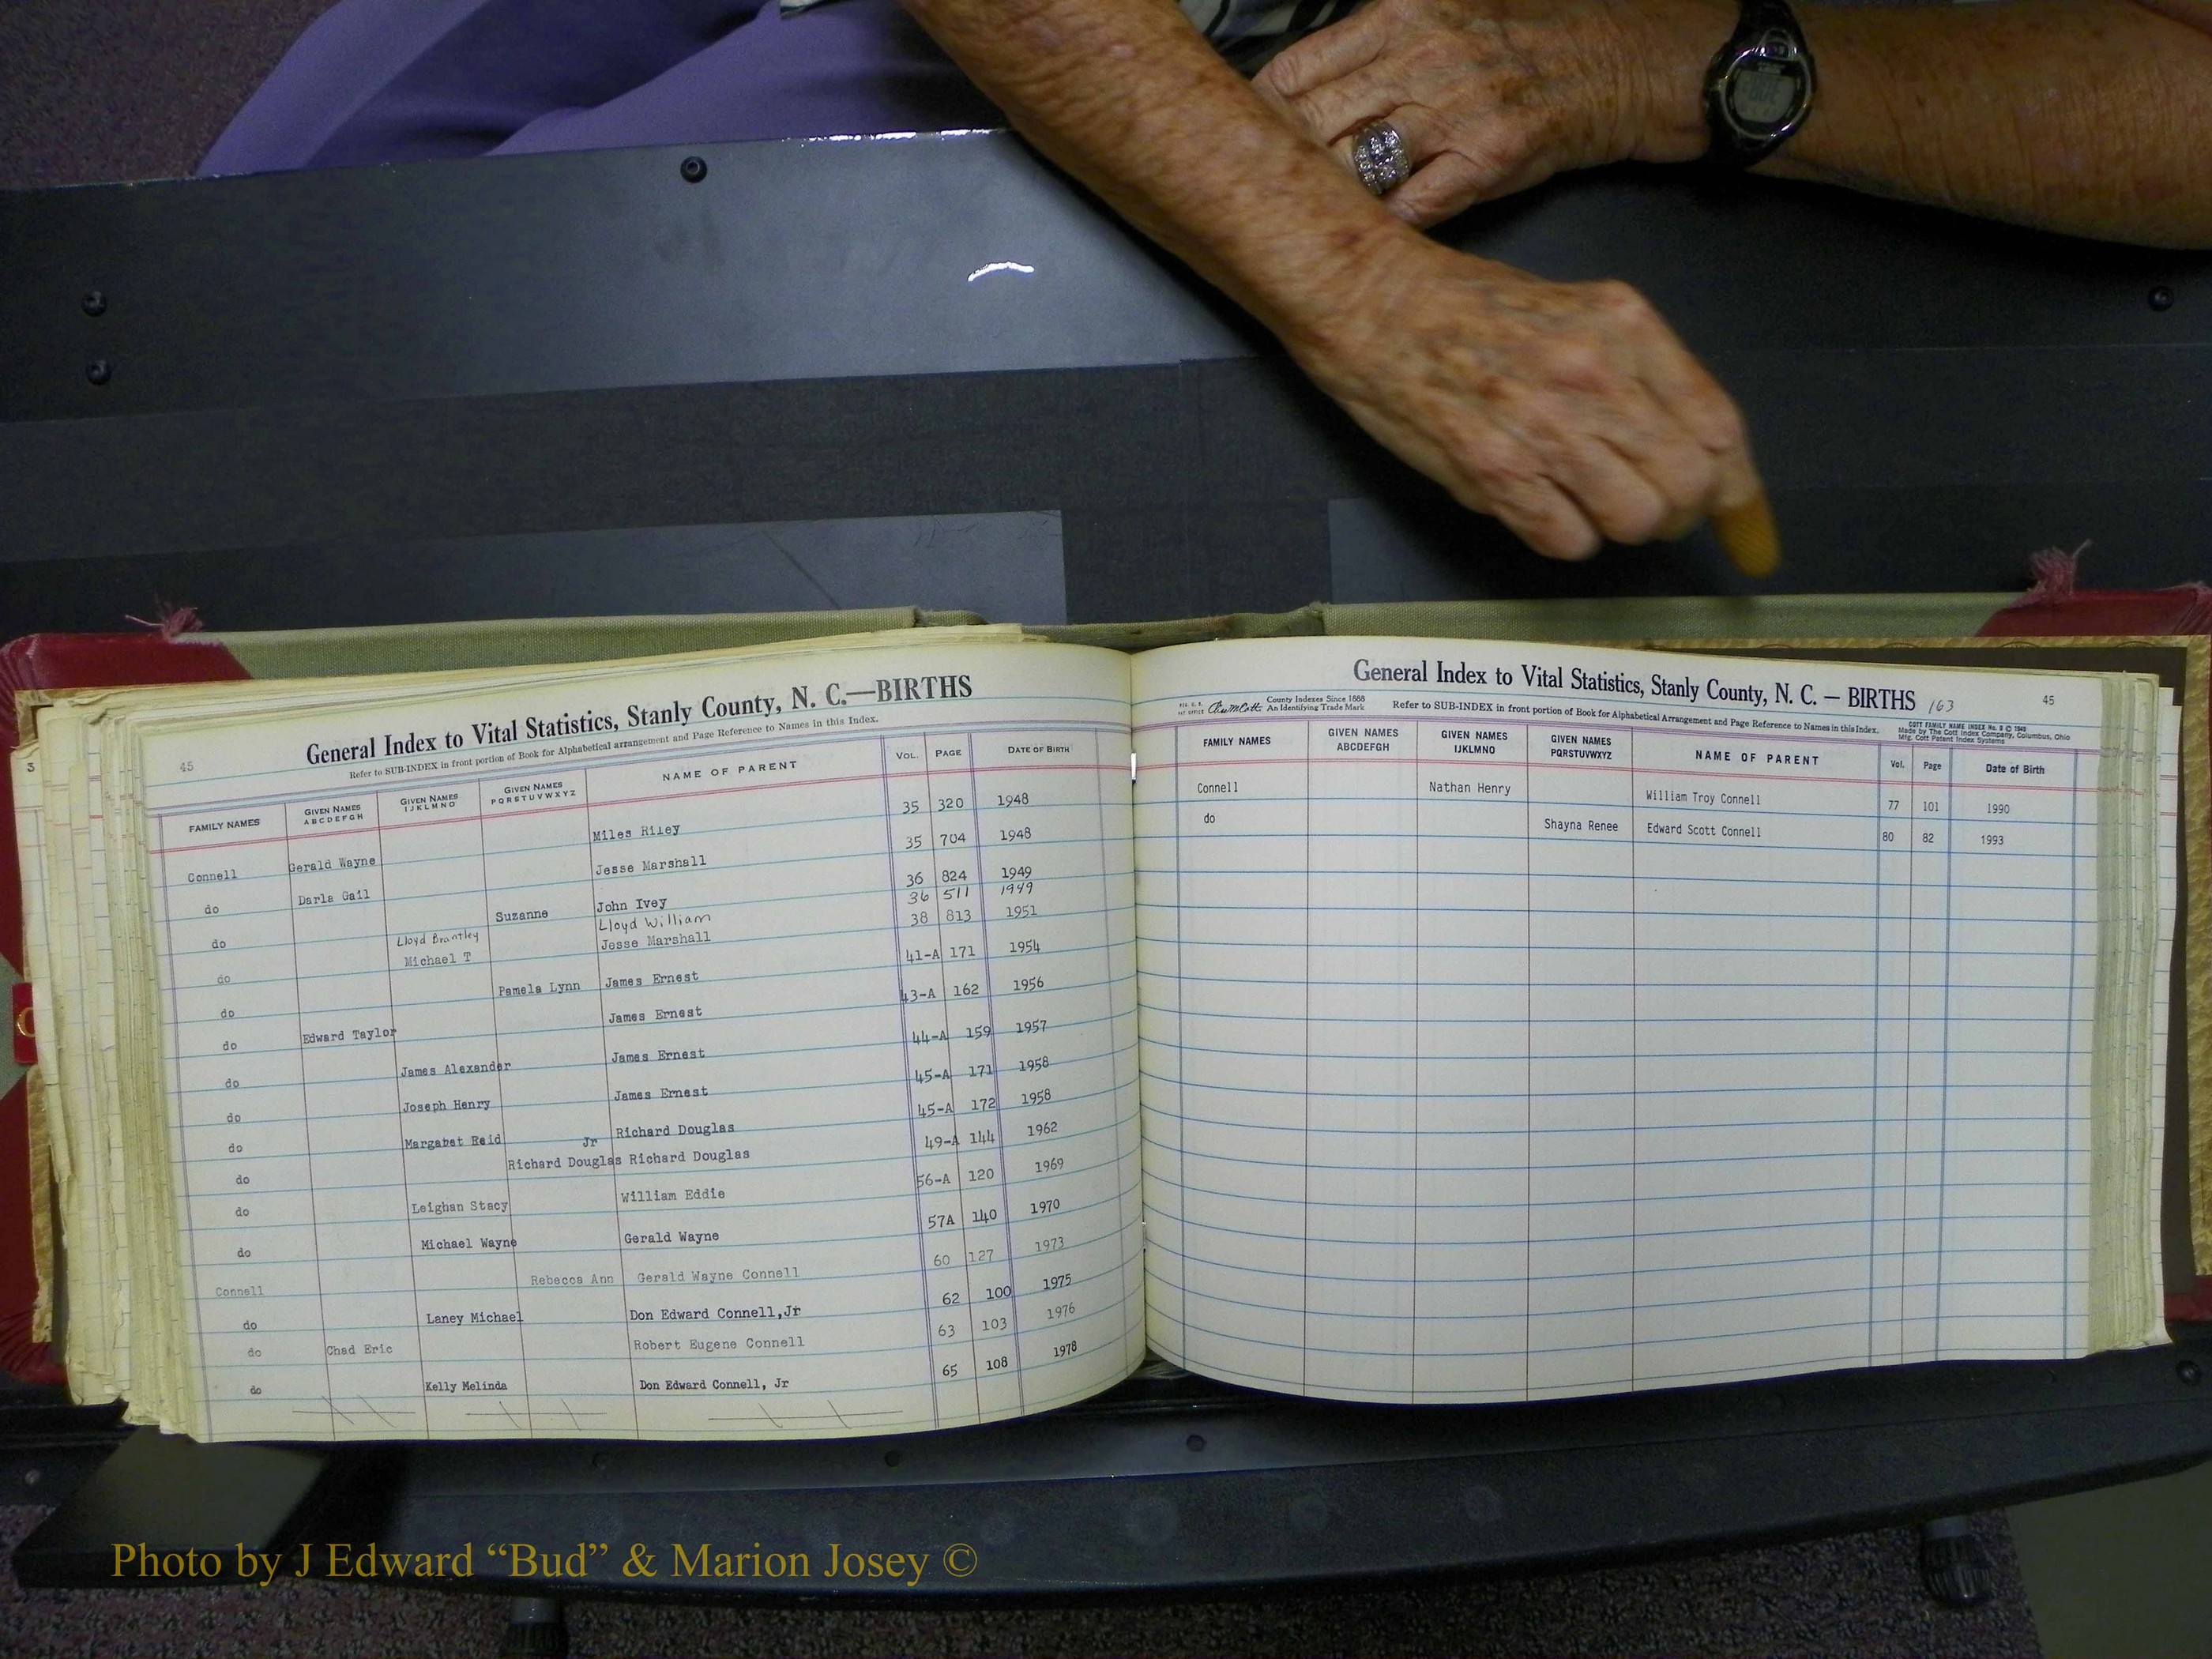 45
General Index to Vital Statistics, Stanly County, N. C.—BIRTHS
Refer to SUB-INDEX in front portion of Book for Alphabetical arrangement and Page Reference to Names in this Index.
FAMILY NAMES GIVEN NAMES ABCDEFGH GIVEN NAMES IJKLMNO GIVEN NAMES PQRSTUVWXYZ NAME OF PARENT VOL. PAGE DATE OF BIRTH
Connell Gerald Wayne Miles Riley 35 320 1948
do Darla Gail Jesse Marshall 35 704 1948
do Suzanne John Ivey 36 824 1949
Lloyd Brantley Lloyd William 36 511 1949
do Michael T Jesse Marshall 38 813 1951
do Pamela Lynn James Ernest 41-A 171 1954
do Edward Taylor James Ernest 43-A 162 1956
do James Alexander James Ernest 44-A 159 1957
do Joseph Henry James Ernest 45-A 171 1958
do Margabet Reid Richard Douglas 45-A 172 1958
do Richard Douglas Jr Richard Douglas 49-A 144 1962
do Leighan Stacy William Eddie 56-A 120 1969
do Michael Wayne Gerald Wayne 57A 140 1970
Connell Rebecca Ann Gerald Wayne Connell 60 127 1973
do Laney Michael Don Edward Connell,Jr 62 100 1975
do Chad Eric Robert Eugene Connell 63 103 1976
do Kelly Melinda Don Edward Connell, Jr 65 108 1978
General Index to Vital Statistics, Stanly County, N. C. — BIRTHS 163
45
County Indexes Since 1888
An Identifying Trade Mark
Refer to SUB-INDEX in front portion of Book for Alphabetical Arrangement and Page Reference to Names in this Index.
Made by The Cott Index Company, Columbus, Ohio
Mfg. Cott Patent Index Systems
FAMILY NAMES GIVEN NAMES ABCDEFGH GIVEN NAMES IJKLMNO GIVEN NAMES PQRSTUVWXYZ NAME OF PARENT Vol. Page Date of Birth
Connell Nathan Henry William Troy Connell 77 101 1990
do Shayna Renee Edward Scott Connell 80 82 1993
3
Photo by J Edward “Bud” & Marion Josey ©